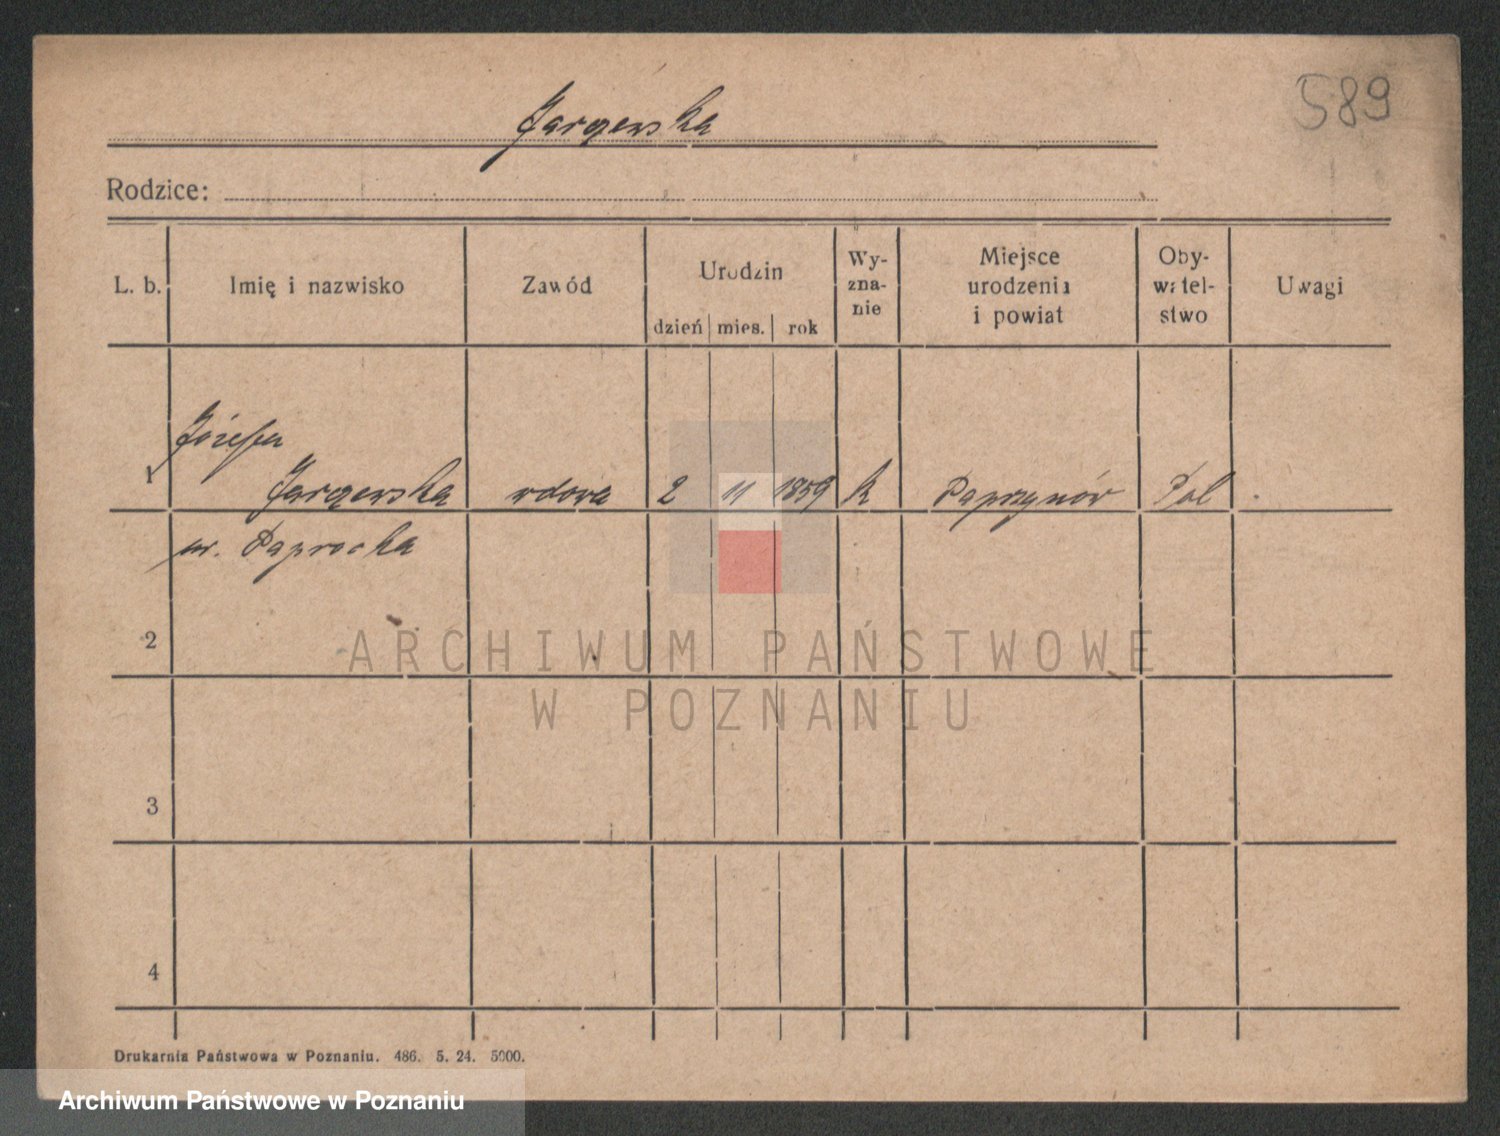 589
Jargewska
Rodzice:
L. b. Imię i nazwisko Zawód Urodzin dzień mies. rok Wy-zna-nie Miejsce urodzenia i powiat Oby-watel-stwo Uwagi
Józefa
1 Jargewska wdowa 2 11 1859 k Paprzynów Pol.
ur. Paprocka
2
ARCHIWUM PAŃSTWOWE
W POZNANIU
3
4
Drukarnia Państwowa w Poznaniu. 486. 5. 24. 5000.
Archiwum Państwowe w Poznaniu